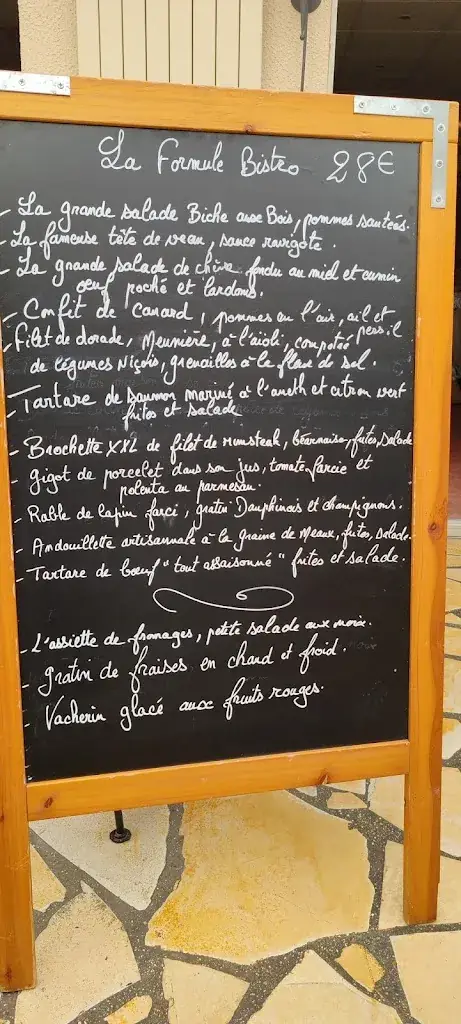 La Formule Bistro 28€
- La grande salade Biche aux Bois, pommes sautées.
- La fameuse tête de veau, sauce ravigote.
- La grande salade de chèvre fondu au miel et cumin
oeuf poché et lardons.
- Confit de canard, pommes en l'air, ail et
persil
- Filet de dorade, Meunière, à l'aïoli, compotée
de légumes Niçois, grenailles à la fleur de sel.
- Tartare de saumon mariné à l'aneth et citron vert
frites et salade
- Brochette XXL de filet de rumsteak, béarnaise, frites, salade
- Gigot de porcelet dans son jus, tomate farcie et
polenta au parmesan.
- Rable de lapin farci, gratin Dauphinois et champignons.
- Andouillette artisannale à la graine de Meaux, frites, salade.
- Tartare de boeuf "tout assaisonné" frites et salade.
- L'assiette de fromages, petite salade aux noix.
- Gratin de fraises en chaud et froid.
- Vacherin glacé aux fruits rouges.